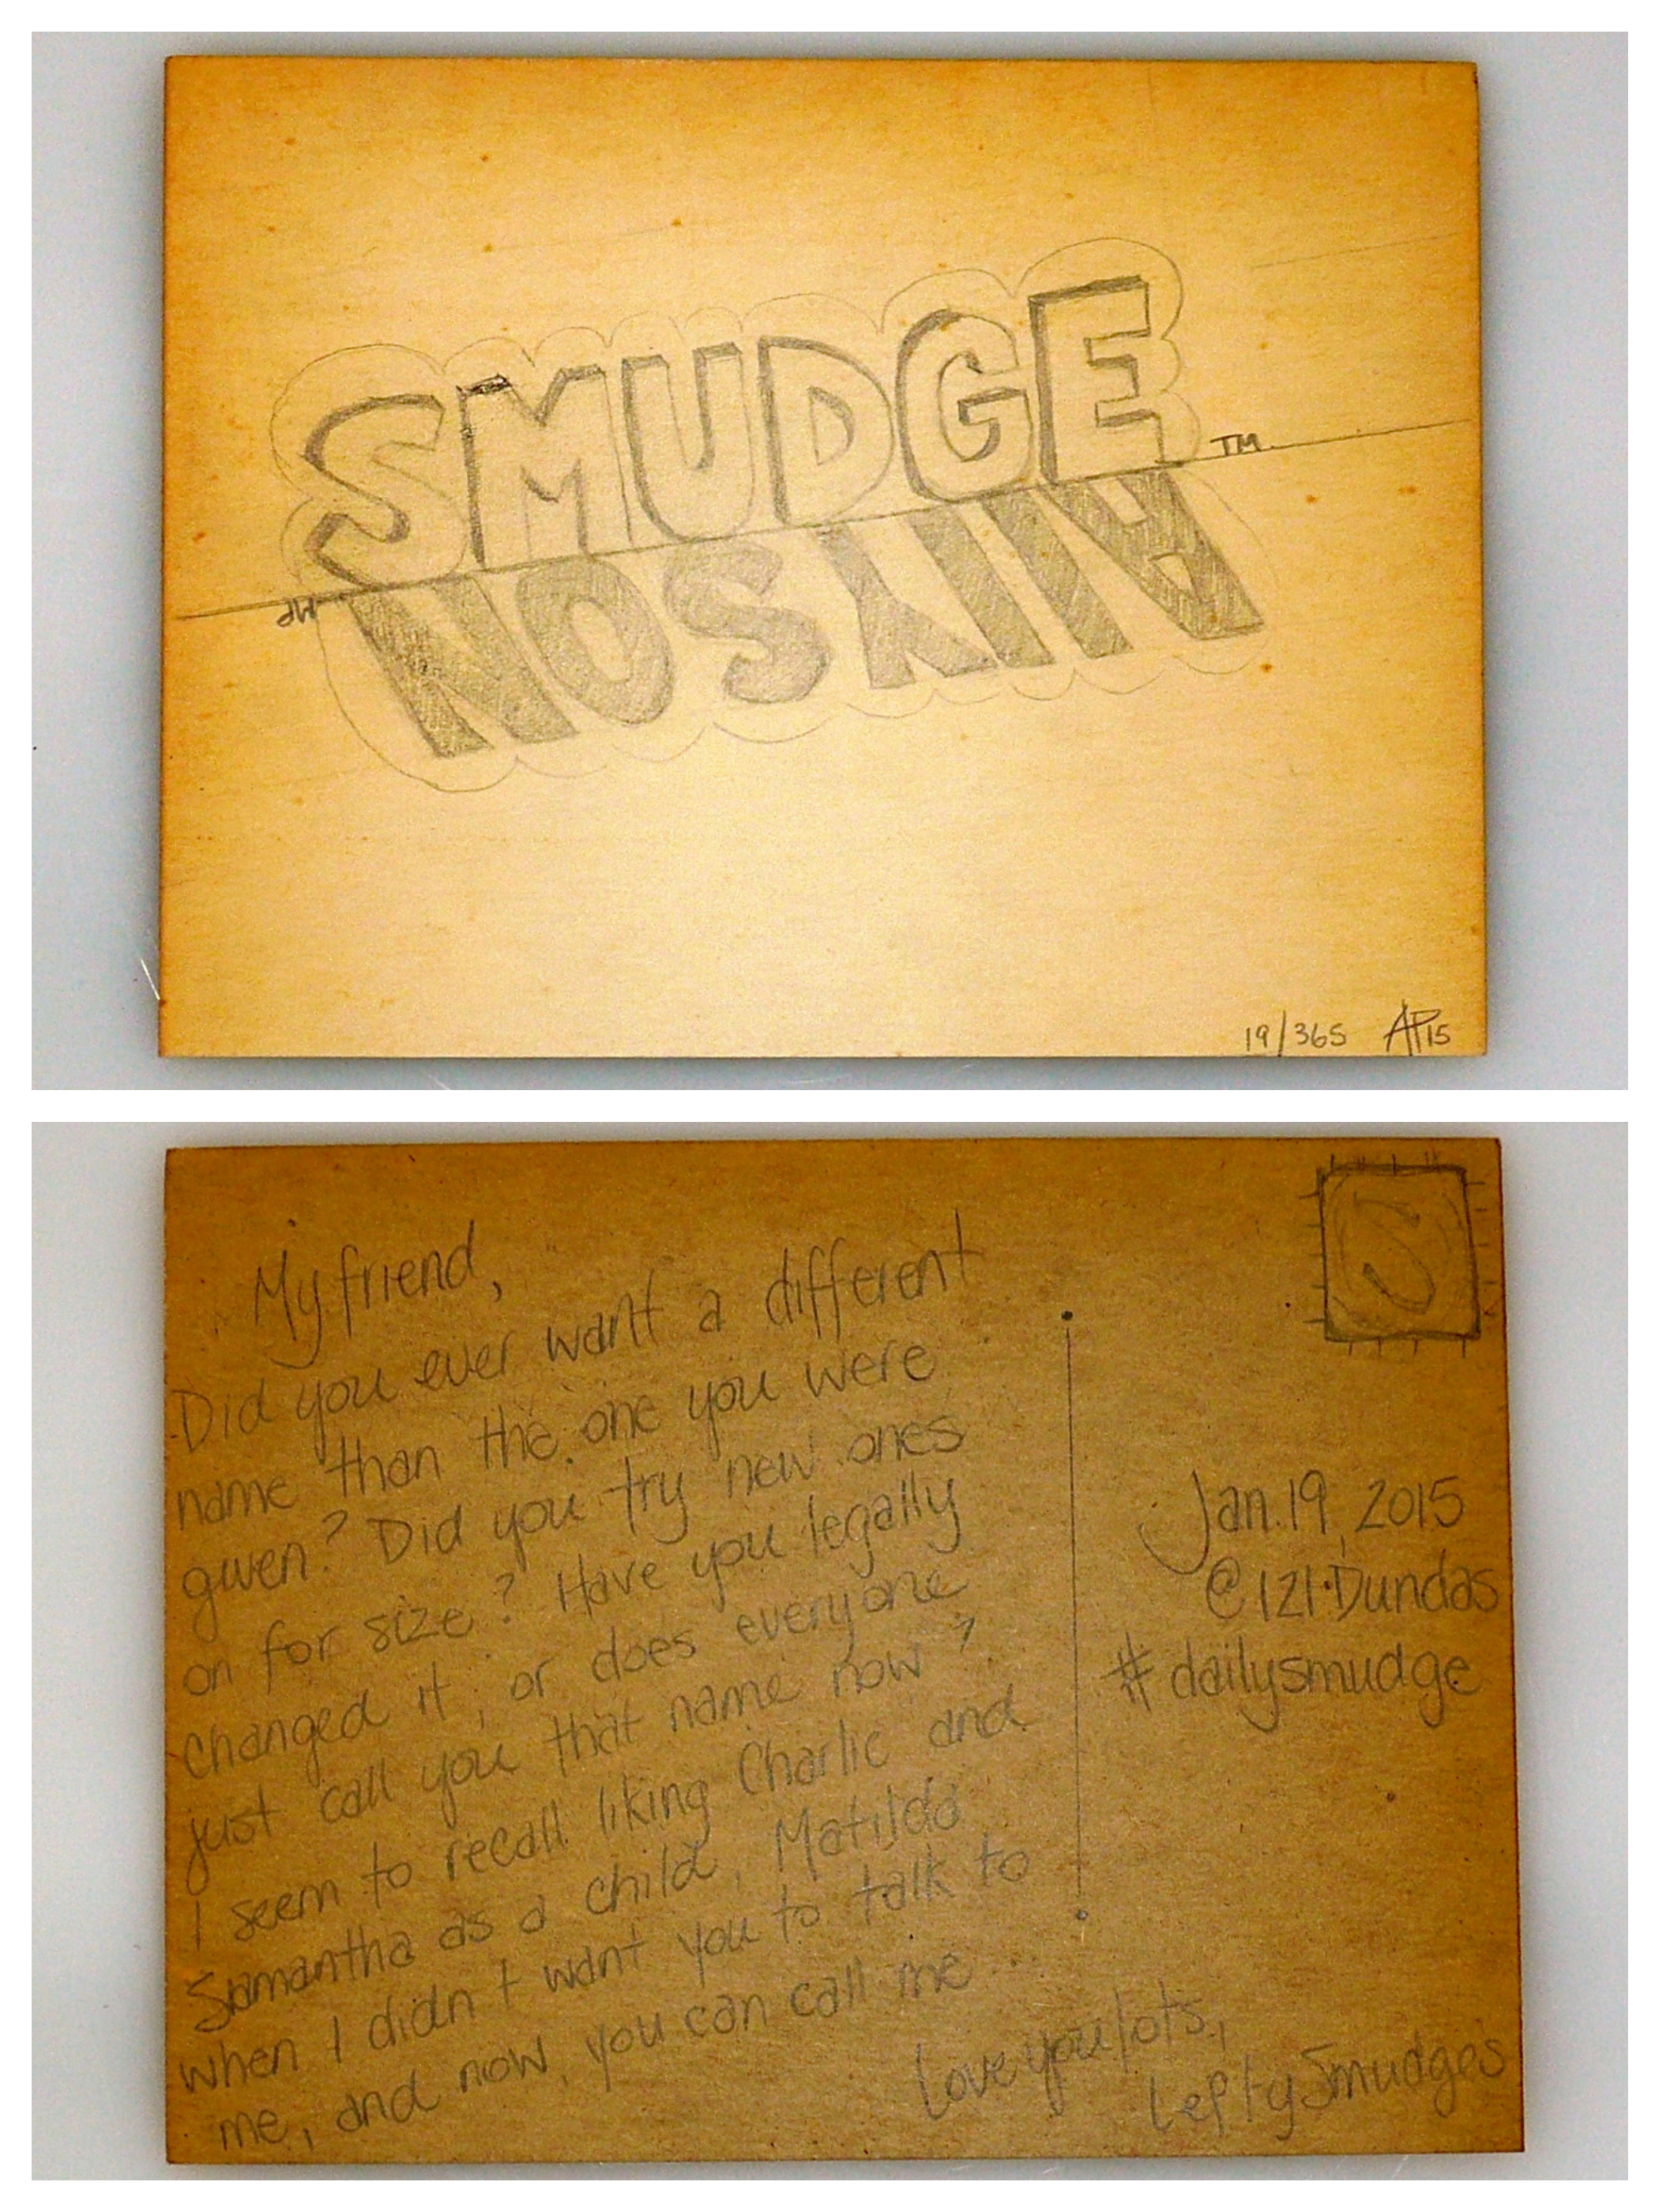 SMUDGE
TM
ALLYSON
AP
19/365 AP15
My friend,
Did you ever want a different
name than the one you were
given? Did you try new ones
on for size? Have you legally
changed it, or does everyone
just call you that name now?
I seem to recall liking Charlie and
Samantha as a child, Matilda
when I didn't want you to talk to
me, and now, you can call me...
Love you lots,
Lefty Smudges
S
Jan. 19, 2015
@121 Dundas
#dailysmudge